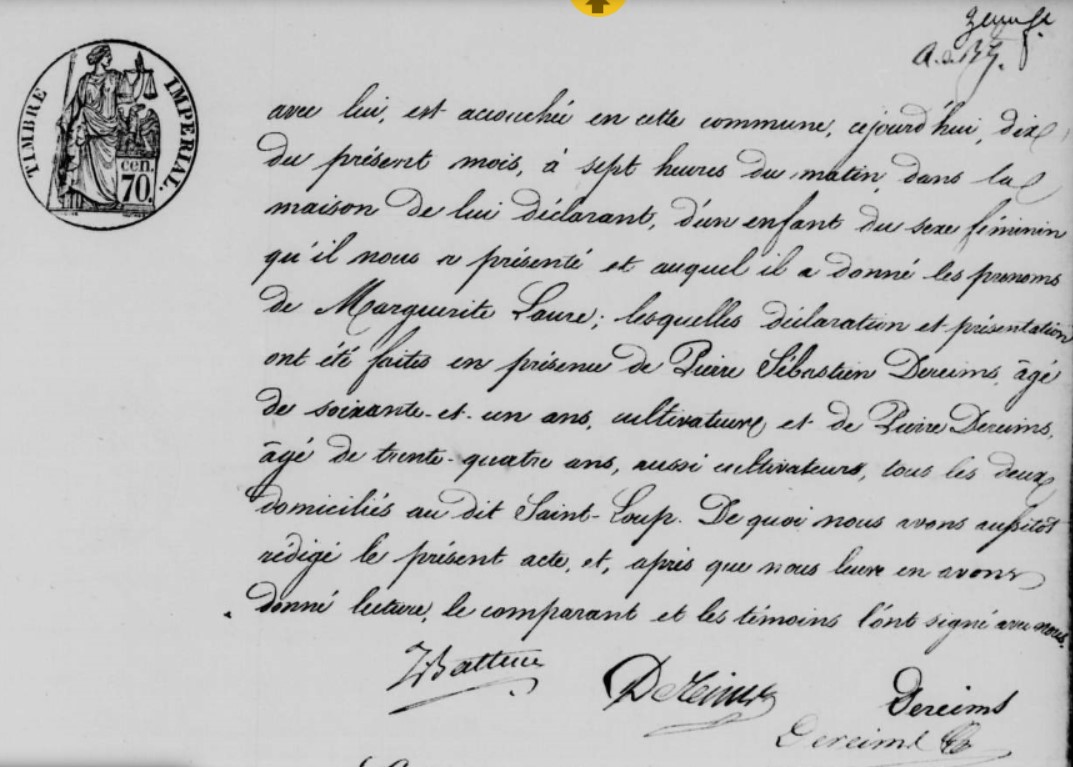 TIMBRE IMPERIAL.
cen.
70.
avec lui, est accouchée en cette commune, cejourd'hui, dix
du présent mois, à sept heures du matin, dans la
maison de lui déclarant, d'un enfant du sexe féminin
qu'il nous a présenté et auquel il a donné les prénoms
de Marguerite Laure; lesquelles déclaration et présentation
ont été faites en présence de Pierre Sébastien Dereims, âgé
de soixante-et-un ans, cultivateur et de Pierre Dereims,
âgé de trente-quatre ans, aussi cultivateurs, tous les deux
domiciliés au dit Saint-Loup. De quoi nous avons aussitot
rédigé le présent acte, et, après que nous leur en avons
donné lecture, le comparant et les témoins l'ont signé avec nous.
Dereims
Dereims